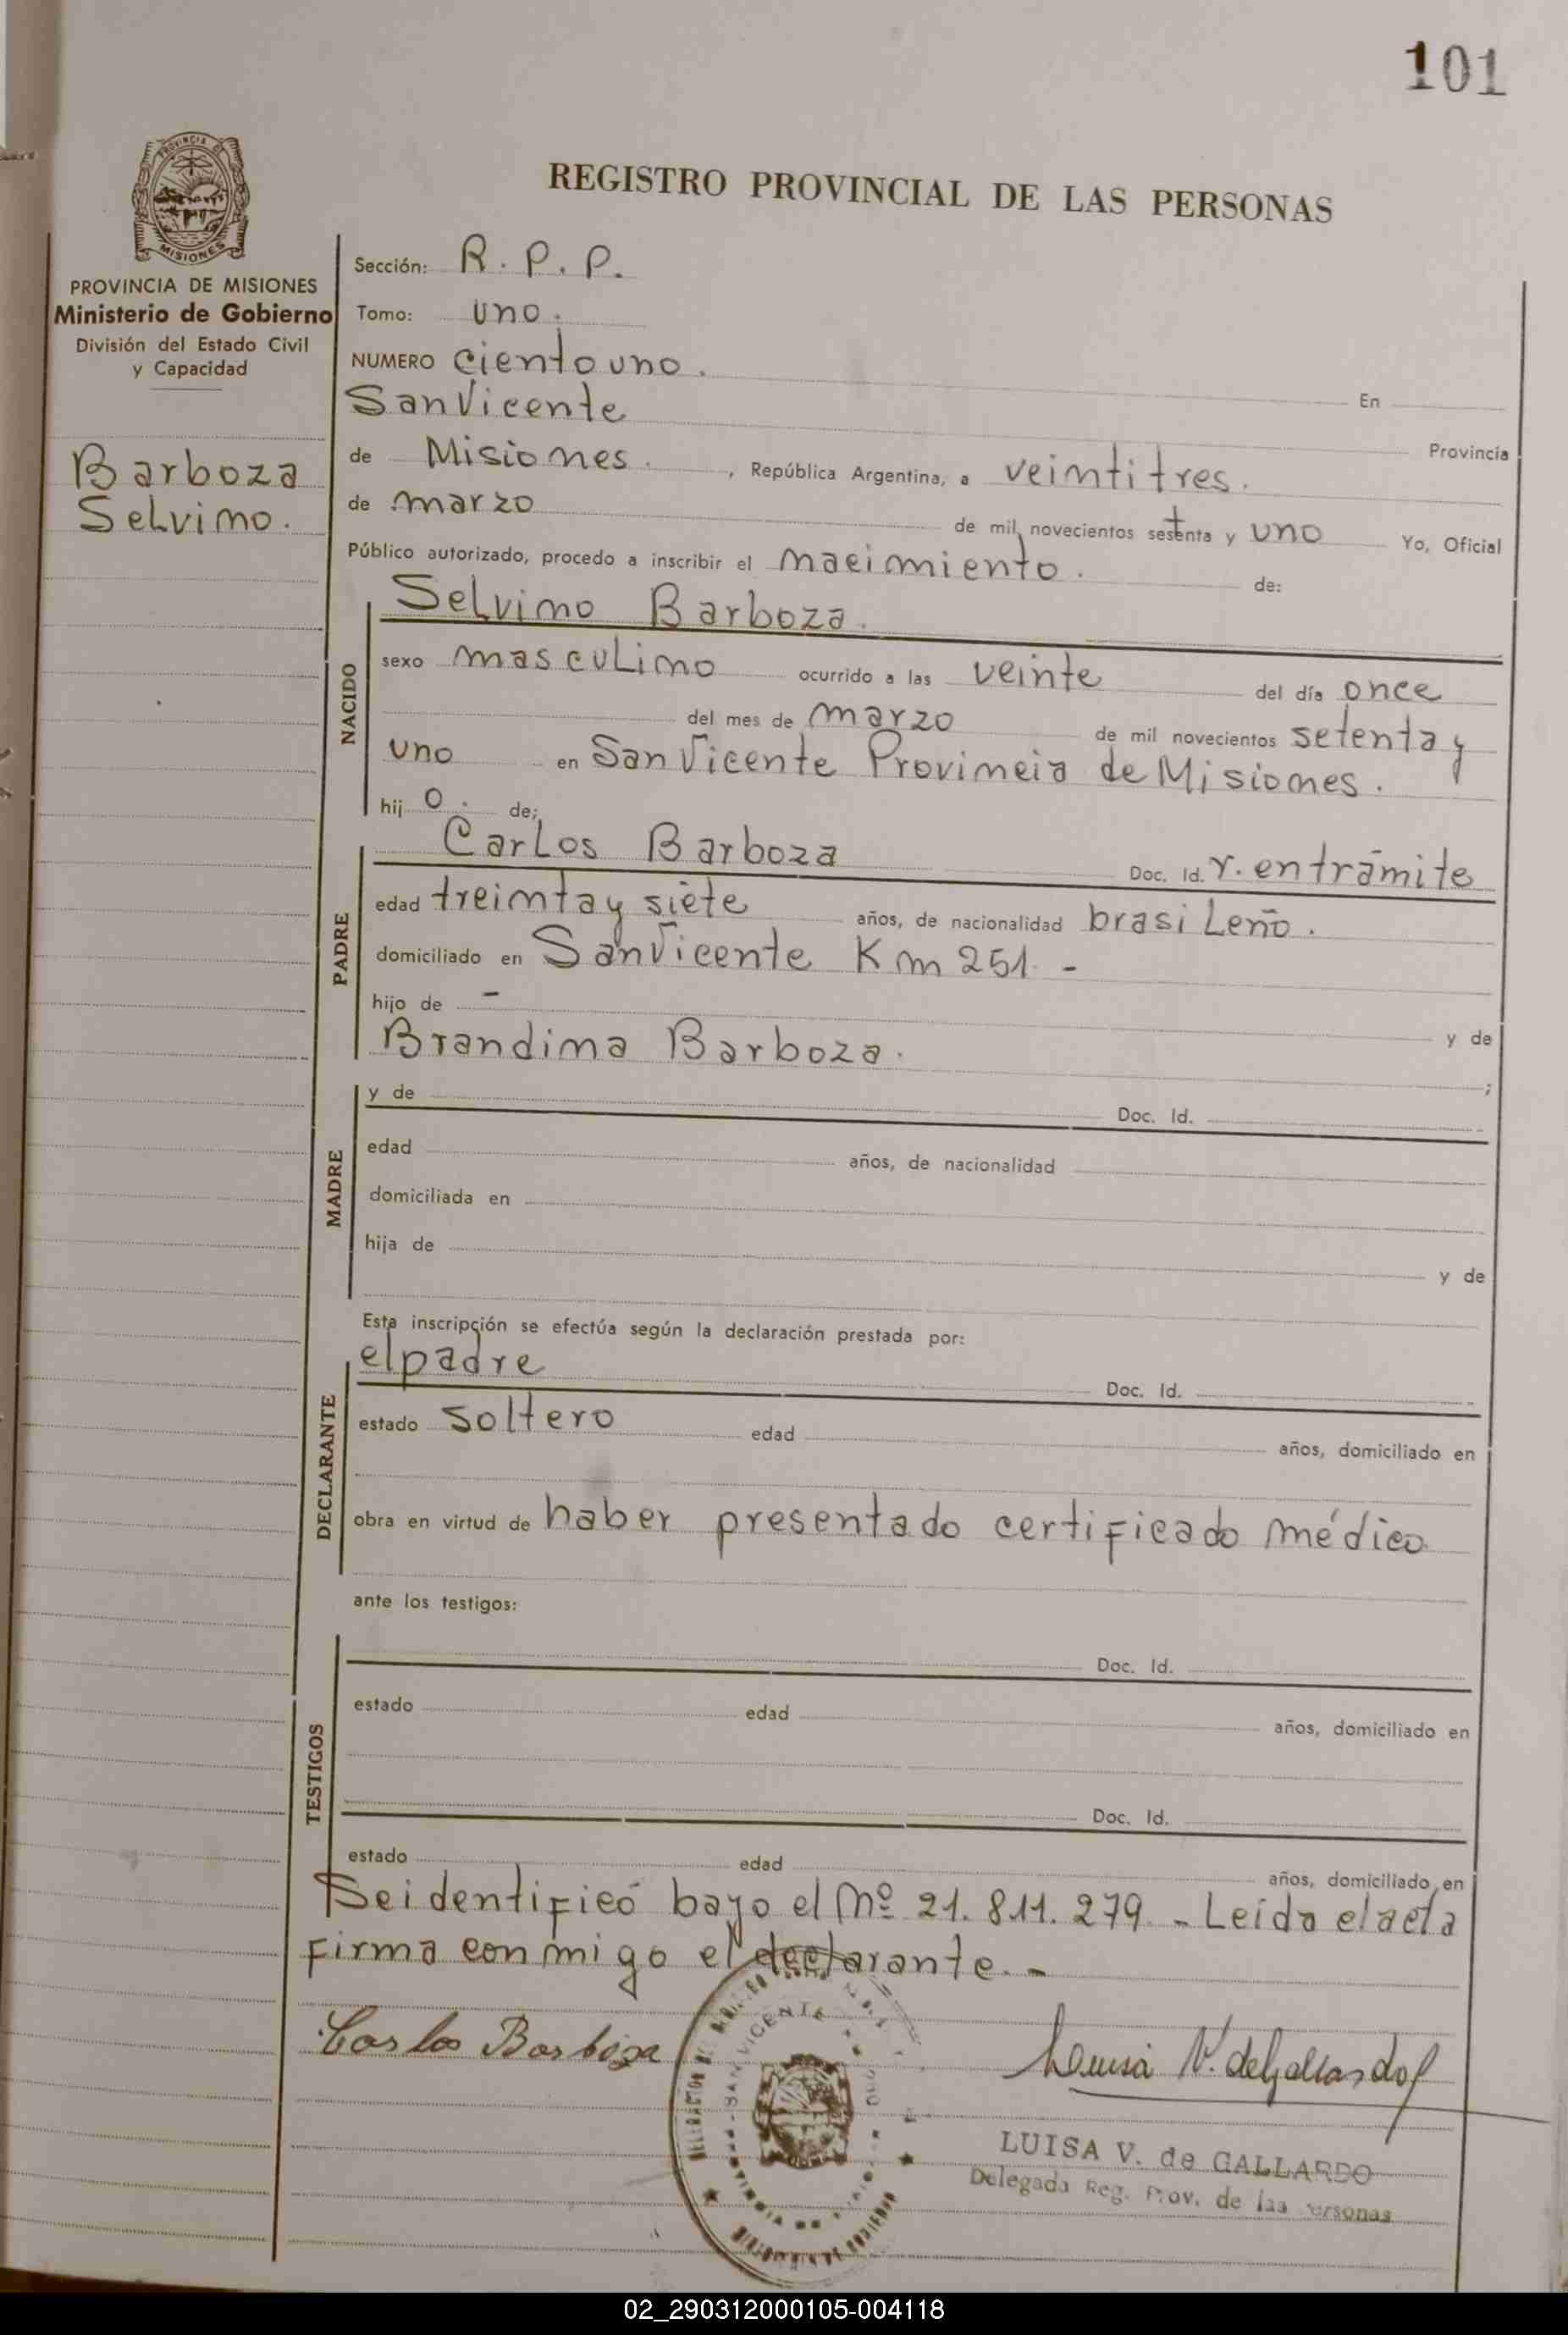 101
PROVINCIA DE
MISIONES
REGISTRO PROVINCIAL DE LAS PERSONAS
PROVINCIA DE MISIONES
Ministerio de Gobierno
División del Estado Civil
y Capacidad
Barboza
Selvino.
Sección: R. P. P.
Tomo: uno.
NUMERO ciento uno. En
San Vicente Provincia
de Misiones. , República Argentina, a veintitres.
de marzo de mil novecientos setenta y uno Yo, Oficial
Público autorizado, procedo a inscribir el nacimiento. de:
Selvino Barboza.
NACIDO
sexo masculino ocurrido a las veinte del día once
del mes de marzo de mil novecientos setenta y
uno en San Vicente Provincia de Misiones.
hij o. de;
Carlos Barboza Doc. Id. r. en trámite
PADRE
edad treinta y siete años, de nacionalidad brasileño.
domiciliado en San Vicente Km 251. -
hijo de - y de
Brandina Barboza. ;
MADRE
y de Doc. Id.
edad años, de nacionalidad
domiciliada en
hija de y de
Esta inscripción se efectúa según la declaración prestada por:
el padre Doc. Id.
DECLARANTE
estado soltero edad años, domiciliado en
obra en virtud de haber presentado certificado médico
ante los testigos:
TESTIGOS
Doc. Id.
estado edad años, domiciliado en
Doc. Id.
estado edad años, domiciliado en
Se identificó bajo el Nº 21.811.279. - Leída el acta
firma conmigo el declarante. -
Carlos Barboza
Luisa V. de Gallardo
SAN VICENTE
LUISA V. de GALLARDO
Delegada Reg. Prov. de las Personas
02_290312000105-004118